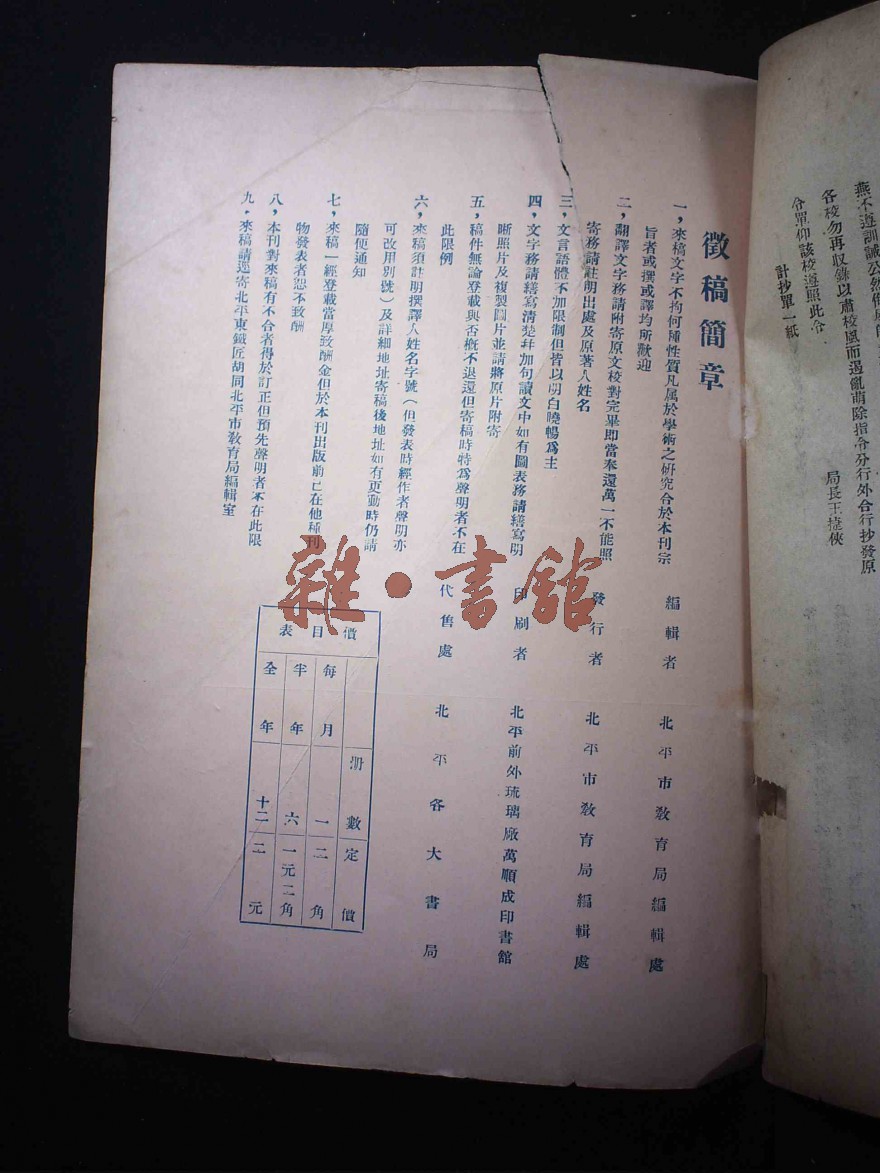 燕不遵訓誡公然
各校勿再收錄以肅校風而遏亂萌除指令分行外合行抄發原
令單仰該校遵照此令
計抄單一紙
局長王捷俠
徵稿簡章
一，來稿文字不拘何種性質凡属於學術之研究合於本刊宗
旨者或撰或譯均所歡迎
二，翻譯文字務請附寄原文校對完畢即當奉還萬一不能照
寄務請註明出處及原著人姓名
三，文言語體不加限制但皆以明白曉暢爲主
四，文字務請繕寫清楚幷加句讀文中如有圖表務請繕寫明
晰照片及複製圖片並請將原片附寄
五，稿件無論登載與否概不退還但寄稿時特爲聲明者不在
此限例
六，來稿須註明撰譯人姓名字號（但發表時經作者聲明亦
可改用別號）及詳細地址寄稿後地址如有更動時仍請
隨便通知
七，來稿一經登載當厚致酬金但於本刊出版前已在他種刊
物發表者恕不致酬
八，本刊對來稿有不合者得於訂正但預先聲明者不在此限
九，來稿請逕寄北平東鐵匠胡同北平市教育局編輯室
編輯者 北平市教育局編輯處
發行者 北平市教育局編輯處
印刷者 北平前外琉璃廠萬順成印書館
代售處 北平各大書局
價目表
册數 定價
每月 一 二角
半年 六 一元二角
全年 十二 二元
雜·書館